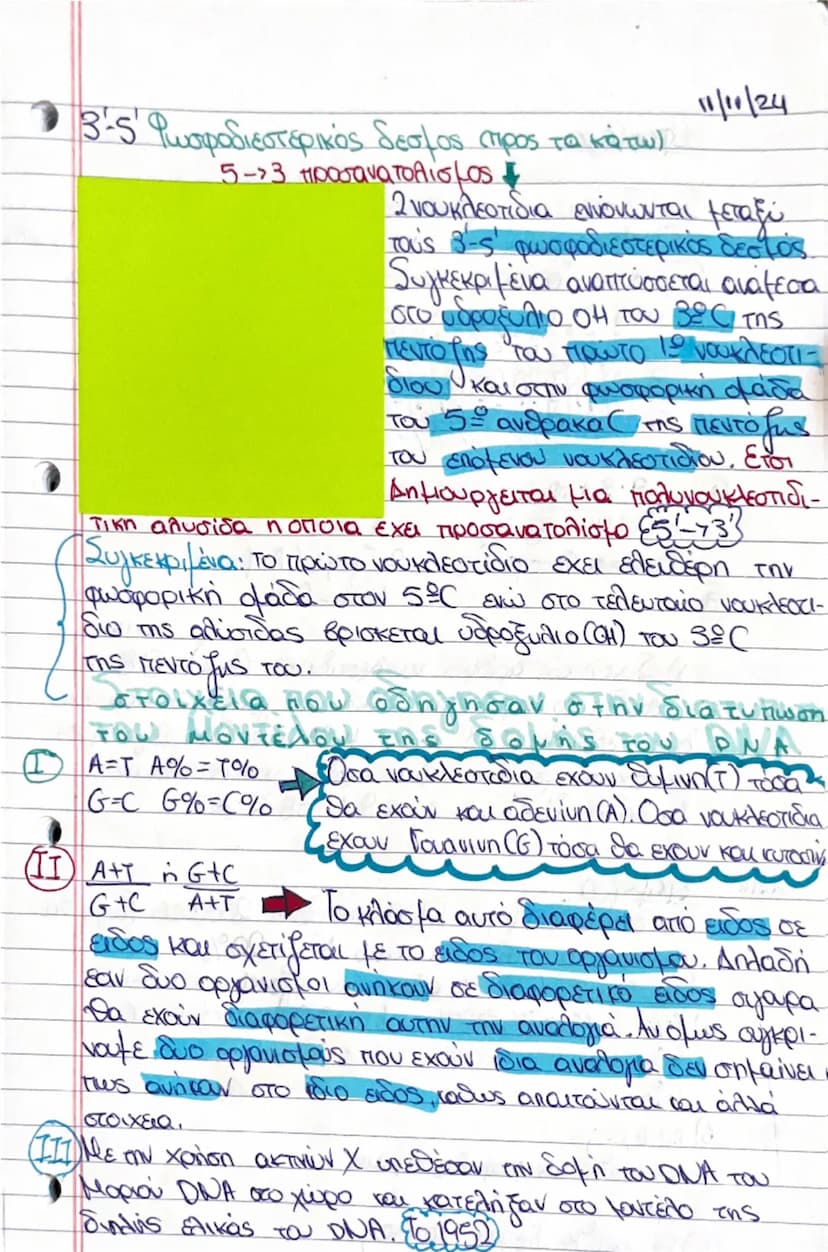 11/11/24
3'-5' Φωσφοδιεστερικός δεσμος (προς τα κάτω)
5->3 προσανατολισμος ↓
2 νουκλεοτιδια ενώνωνται μεταξύ
τους 3'-5' φωσφοδιεστερικός δεσμός
Συγκεκριμένα αναπτύσσεται ανάμεσα
στο υδροξυλιο OH του 3ºC της
πεντόζης του πρωτο 1º νουκλεοτι-
διου και στην φωσφορική ομάδα
του 5º ανθρακα C της πεντόζης
του επόμενου νουκλεοτιδιου. Ετσι
Δημιουργειται μια πολυνουκλεοτιδι-
τικη αλυσιδα η οποια έχει προσανατολισμο 5'->3'
Συγκεκριμένα: το πρώτο νουκλεοτίδιο εχει ελευθέρη την
φωσφορική ομάδα στον 5ºC ενώ στο τελευταίο νουκλεοτι-
διο της αλύσιδας βρισκεται υδροξυλιο (OH) του 3ºC
της πεντόζης του.
Στοιχεια που οδηγησαν στην διατυπωση
του Μοντέλου της δομής του DNA
I A=T A%=T% → Οσα νουκλεοτιδια εχουν θυμινη (T) τόσα
G=C G%=C% θα εχουν και αδενίνη (A). Οσα νουκλεοτιδια
εχουν Γουανινη (G) τόσα θα εχουν και κυτοσίν
II A+T ή G+C
G+C A+T → Το κλάσμα αυτό διαφέρει από ειδος σε
ειδος και σχετίζεται με το ειδος του οργανισμου. Δηλαδή
εαν δυο οργανισμοι ανήκουν σε διαφορετικό ειδος σιγουρα
θα εχούν διαφορετική αυτην την αναλογιά. Αν όμως συγκρι-
νουμε δυο οργανισμούς που εχουν ιδια αναλογια δεν σημαίνει
πως ανήκουν στο ιδιο ειδος, καθως απαιτούνται και άλλά
στοιχεια.
III Με την χρήση ακτινών X υπεθέσαν την δομή του DNA του
Μοριού DNA στο χώρο και κατεληξαν στο μοντέλο της
διπλής ελικάς του DNA. Το 1952